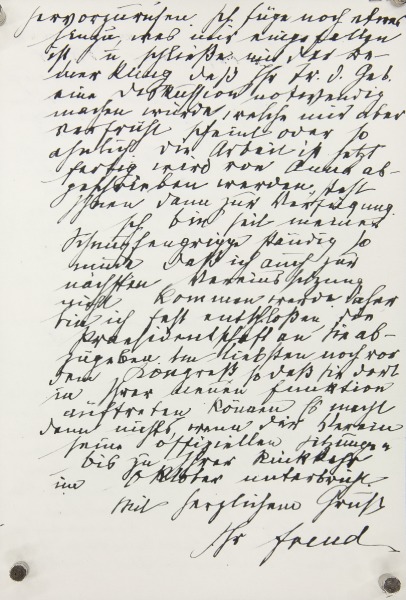 hervorzurufen. Ich füge noch etwas
hinzu, was mir eingefallen
ist, u schließe mit der Be-
merkung daß Ihr Tr. d. Geb.
eine Diskussion notwendig
machen würde, welche mir aber
verfrüht scheint oder so
ähnlich. Die Arbeit ist jetzt
fertig wird von Anna ab-
geschrieben werden, steht
Ihnen dann zur Verfügung.
Ich bin seit meiner
grippe ständig so
müde daß ich auch zur
nächsten Vereinssitzung
nicht kommen werde. Daher
bin ich fest entschloßen die
Praesidentschaft an Sie ab-
zugeben. Am liebsten noch vor
dem Kongreß so daß Sie dort
in Ihrer neuen Funktion
auftreten können Es macht
dann nichts, wenn der Verein
seine offiziellen Sitzungen
bis zu Ihrer Rückkehr
im Oktober unterbricht.
Mit herzlichem Gruß
Ihr Freud